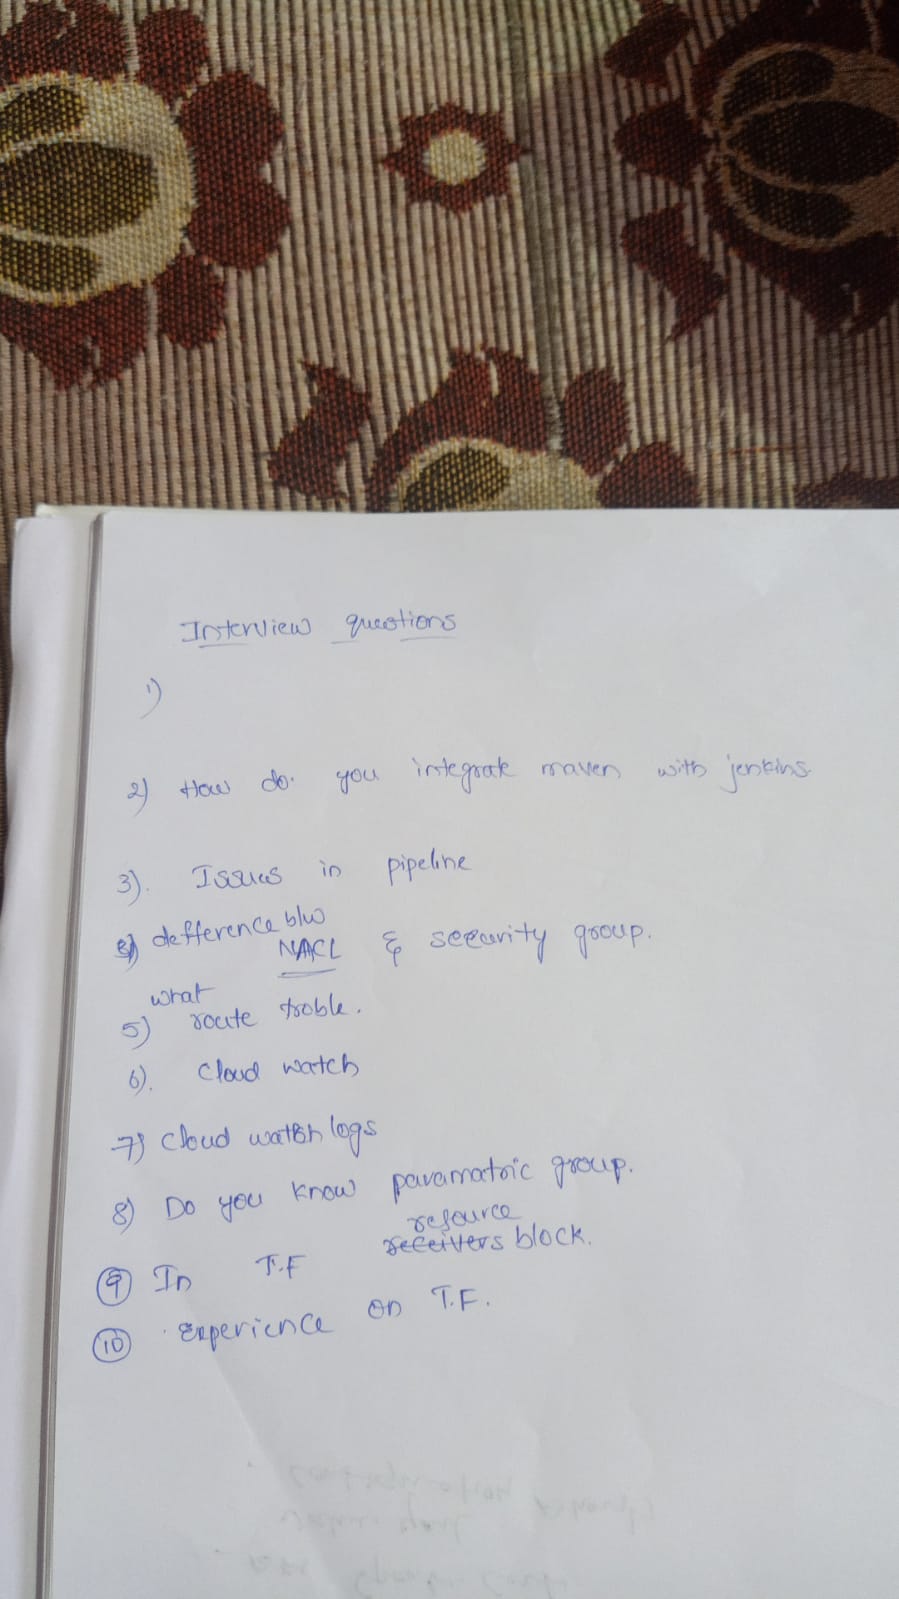 Interview questions
1)
2) How do you integrate maven with jenkins.
3). Issues in pipeline
defference b/w
NACL & security group.
what
5) route troble.
6). Cloud watch
7) Cloud watch logs
8) Do you know paramatric group.
resource
9 In T.F receivers block.
10 Experience on T.F.